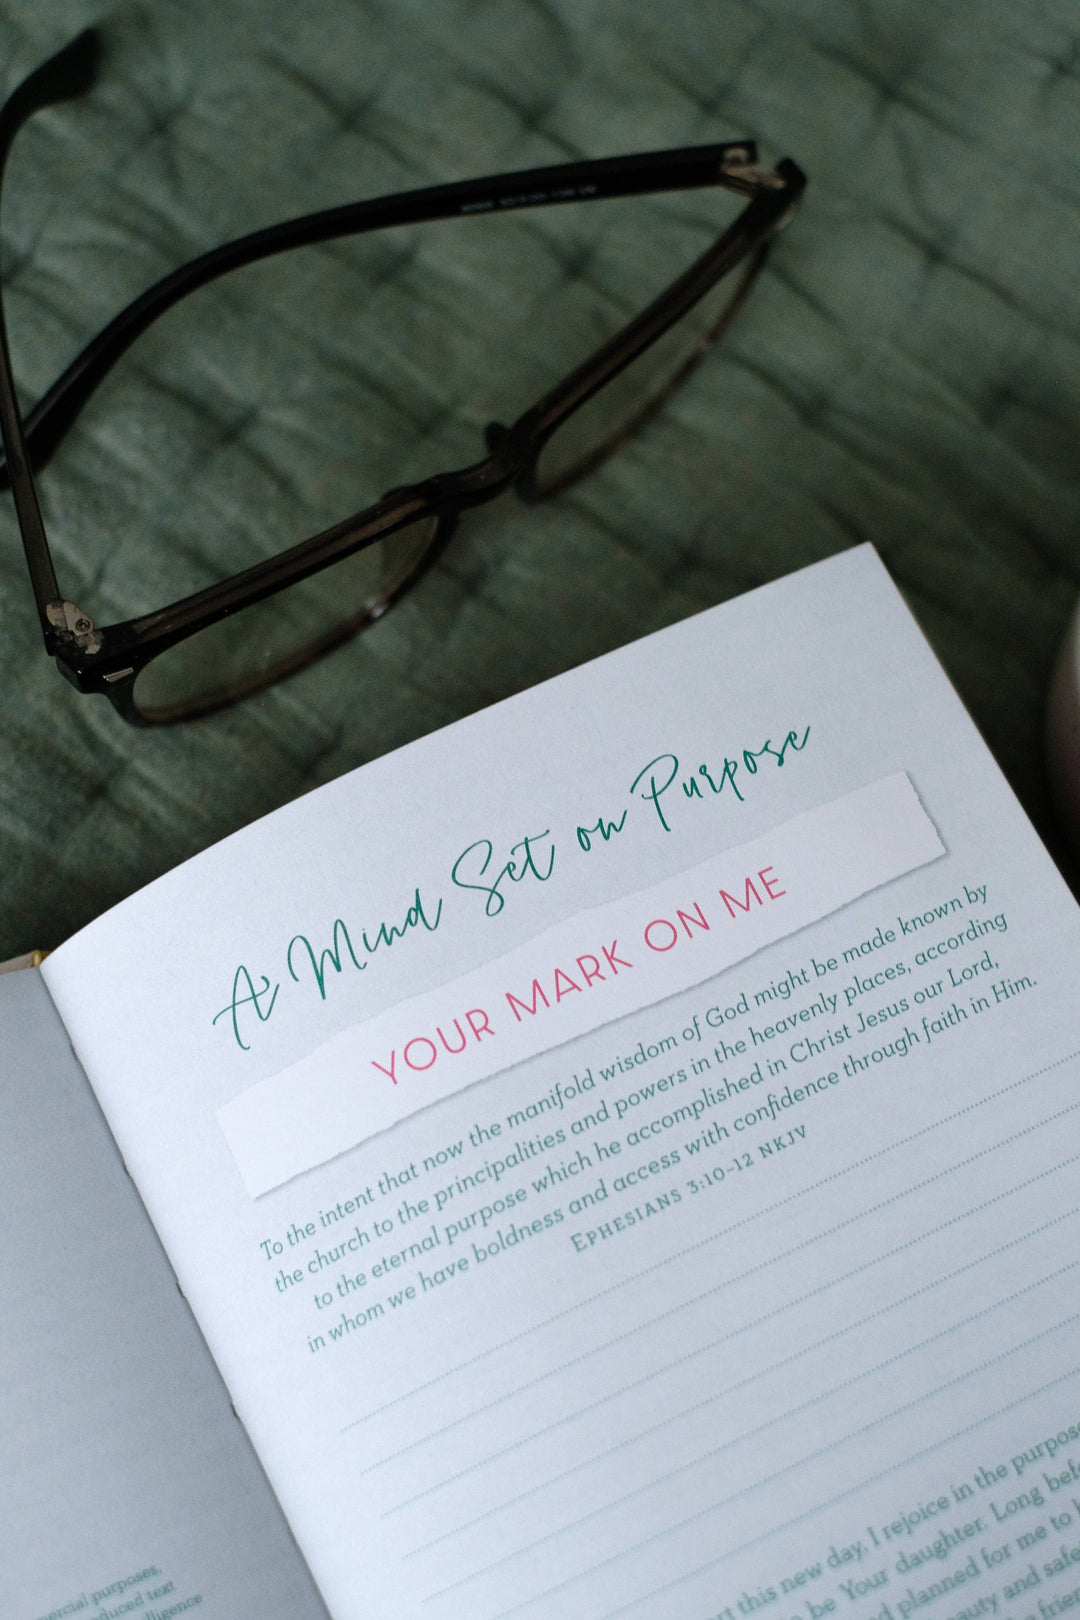 A Mind Set on Purpose
YOUR MARK ON ME
To the intent that now the manifold wisdom of God might be made known by
the church to the principalities and powers in the heavenly places, according
to the eternal purpose which he accomplished in Christ Jesus our Lord,
in whom we have boldness and access with confidence through faith in Him.
EPHESIANS 3:10–12 NKJV
this new day, I rejoice in the
be Your daughter. Long
planned for me to
and
purposes,
text